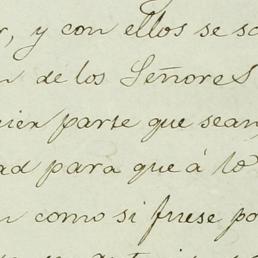 , y con ellos se
de los Señores
parte que sean
para que á lo
como si fuese